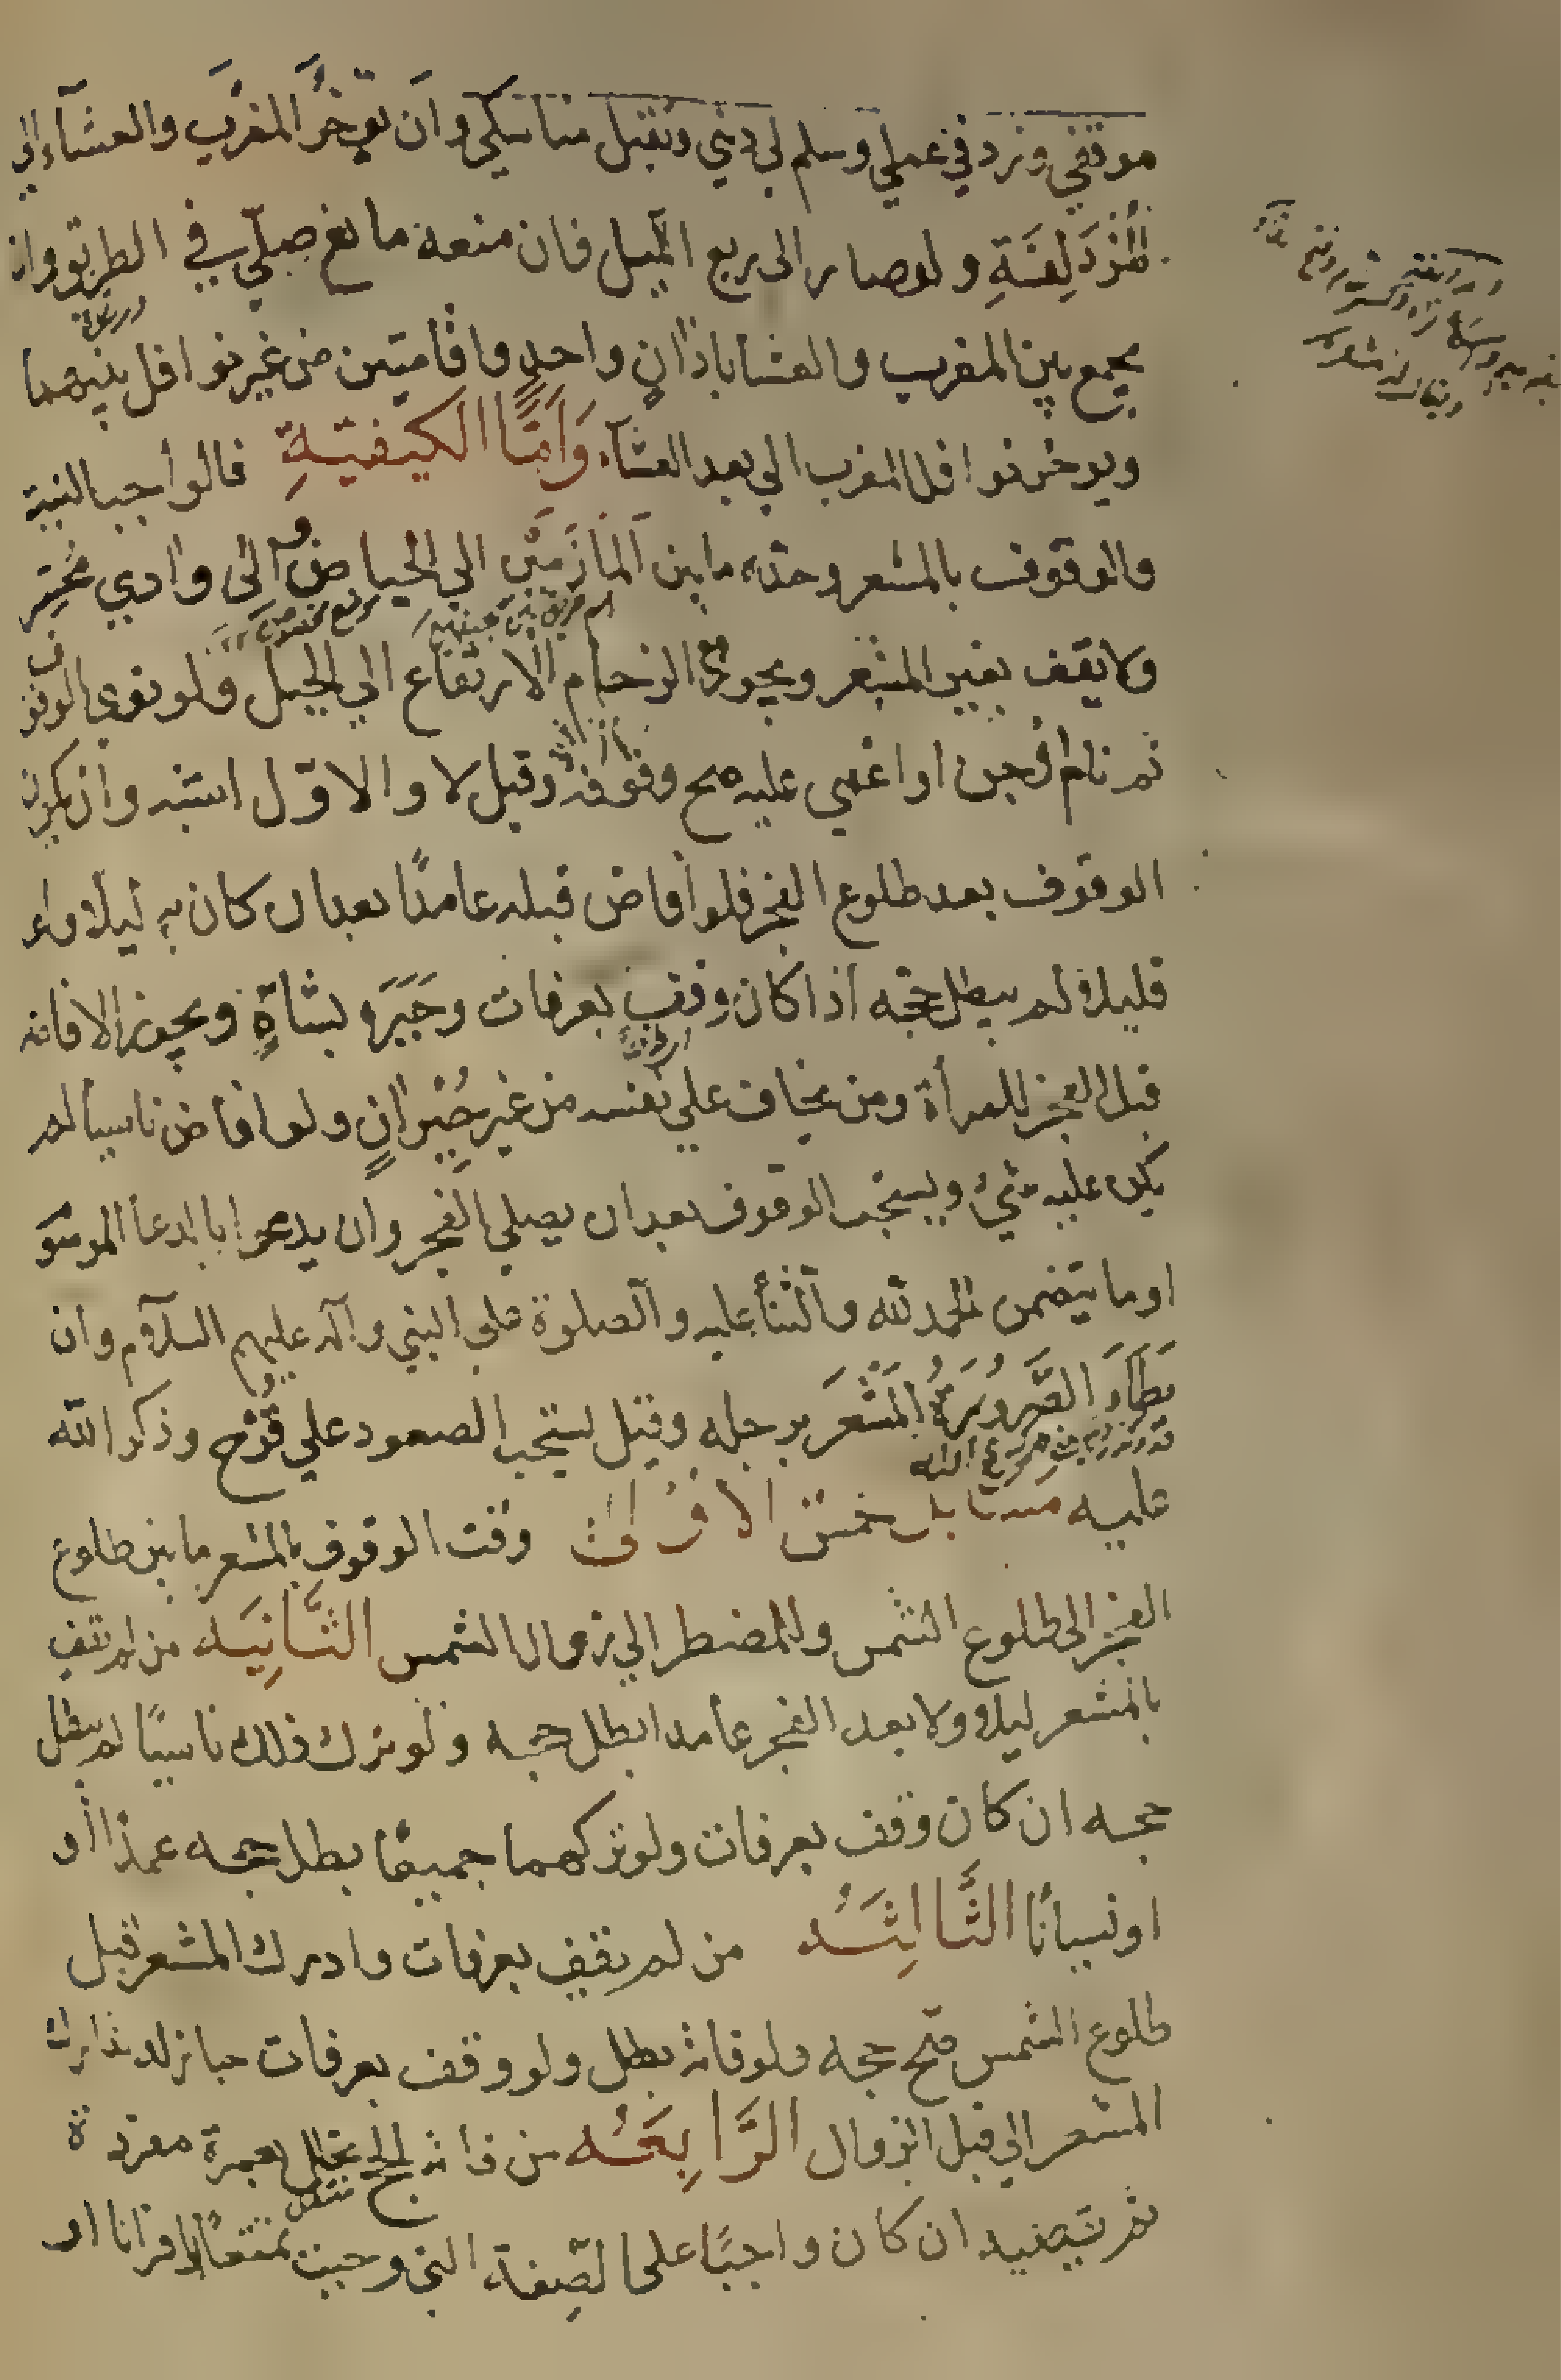 موقفي وزد في عملي وسلم لي ديني وتقبل مناسكي وان يؤخر المغرب والعشآء الى
المُزْدَلِفَةِ ولوصار الى ربع الليل فان منعه مانع صلي في الطريق وان
يجمع بين المغرب والعشا باذانٍ واحدٍ واقامتين من غير نوافل بينهما
ويوخر نوافل المغرب الي بعد العشآء وَاَمَّا الكيفيّةِ فالواجب النية
والوقوف بالمشعر وحدّه مابين المأزمَيْن الي الحياض والى وادي محسّر
ولا يقف بغير المشعر ويجوز مع الزحام الارتفاع الي الجبل ولو نوى الوقوف
ثم نام او جن او اغمي عليه صح وقوفه وقيل لا والاوّل اشبه وان يكون
الوقوف بعد طلوع الفجر فلو افاض قبله عامدًا بعد ان كان به ليلا ولو
قليلا لم يبطل حجّه اذا كان وقف بعرفات وجَبَرَه بشاةٍ ويجوز الافاضه
قبل الفجر للمرأة ومن يخاف علي نفسه من غير جُبْرانٍ ولو افاض ناسيا لم
يكن عليه شيءُ ويستحب الوقوف بعد ان يصلي الفجر وان يدعوا بالدعا المرسوم
او ما يتضمن الحمد لله والثنأ عليه والصلوة علي النبي وآله عليهم السلآم وان
يَطَأَ الصَّرُورَةُ المَشْعَرَ برجله وقيل يستحب الصعود علي قُزَح وذكر الله
عليه مسَائل خمسٌ الاُولىٰ وقت الوقوف بالمشعر مابين طلوع
الفجر الى طلوع الشمس وللمضطر الي زوال الشمس الثَّانِيَه من لم يقف
بالمشعر ليلا ولا بعد الفجر عامدا بطل حجه ولو ترك ذلك ناسيًا لم يبطل
حجه ان كان وقف بعرفات ولو تركهما جميعًا بطل حجه عمدًا او
او نسيانًا الثَّالِثَه من لم يقف بعرفات وادرك المشعر قبل
طلوع الشمس صح حجه ولو فاته بطل ولو وقف بعرفات جاز له تدارك
المشعر الي قبل الزوال الرَّابِعَه من فاته الحج تحلل بعمرة مفردة
ثم يقضيه ان كان واجبًا على الصِفة التي وجبت تمتعًا او قرانا او